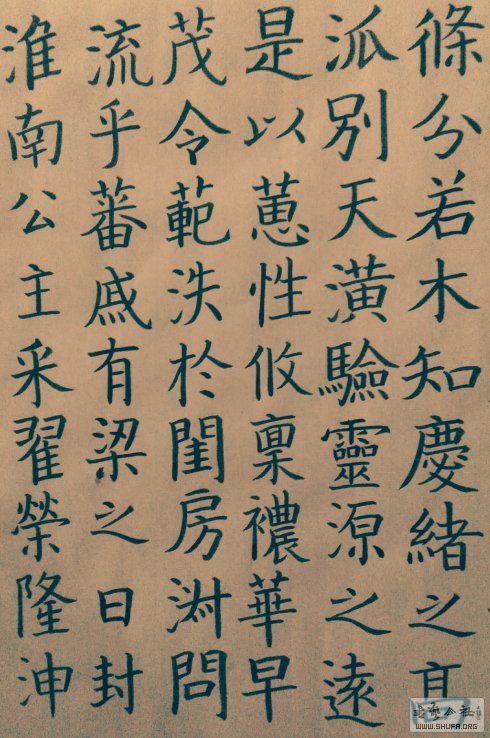 條分若木知慶緒之高
派別天潢驗靈源之遠
是以蕙性攸稟襛華早
茂令範泆於閨房淑問
流乎蕃戚有梁之日封
淮南公主采翟榮隆沖
WWW.SHUFA.ORG